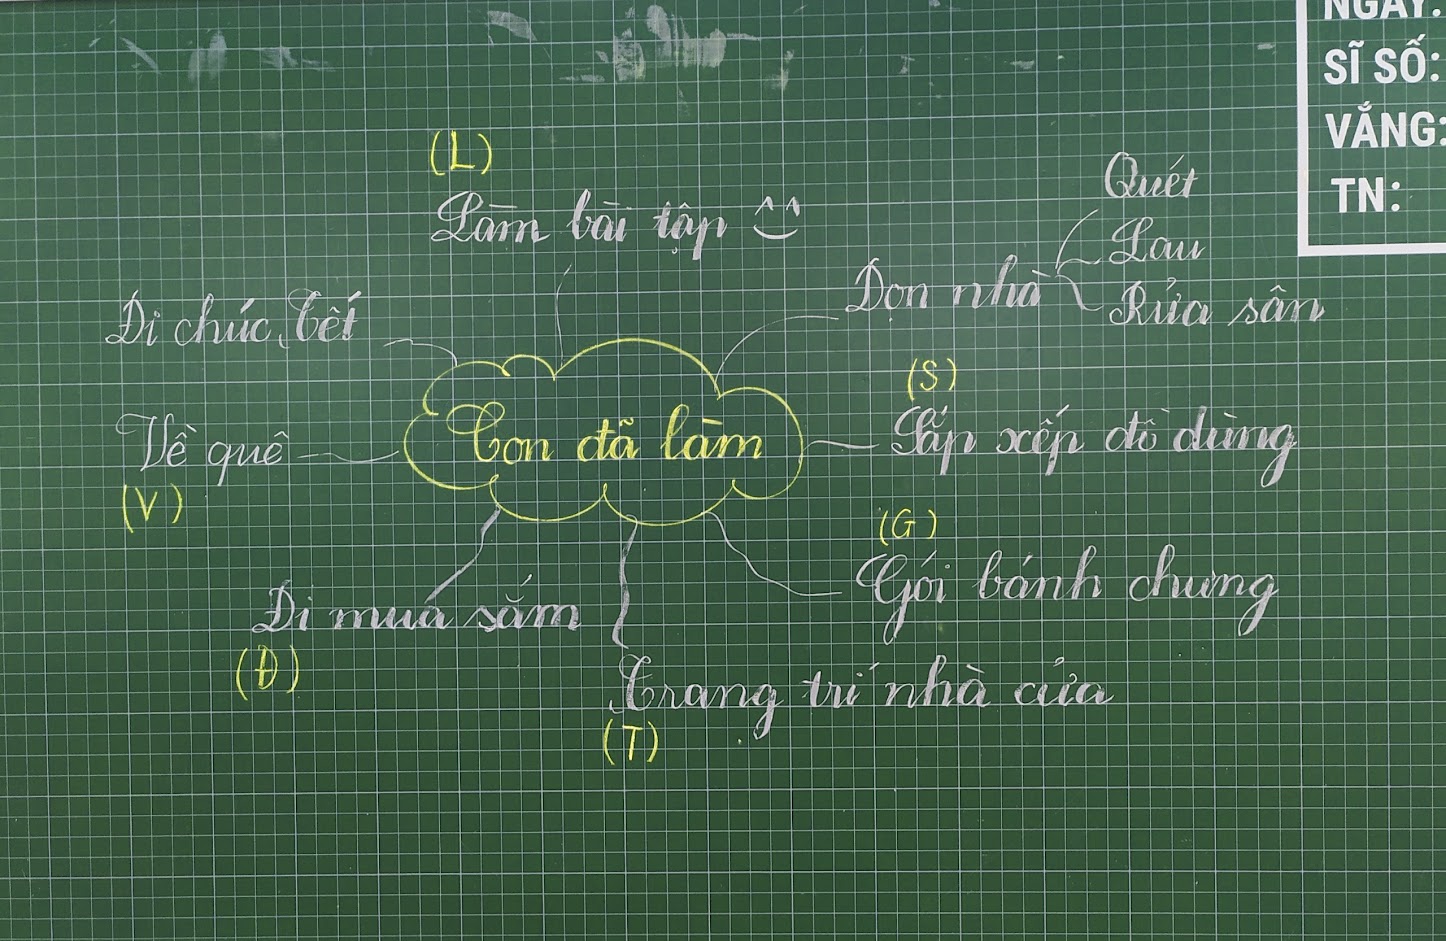 NGÀY:
SĨ SỐ:
VẮNG:
TN:
(L)
Làm bài tập
Đi chúc Tết
Dọn nhà
Quét
Lau
Rửa sân
(S)
Sắp xếp đồ dùng
Con đã làm
Về quê
(V)
(G)
Gói bánh chưng
Đi mua sắm
(Đ)
Trang trí nhà cửa
(T)